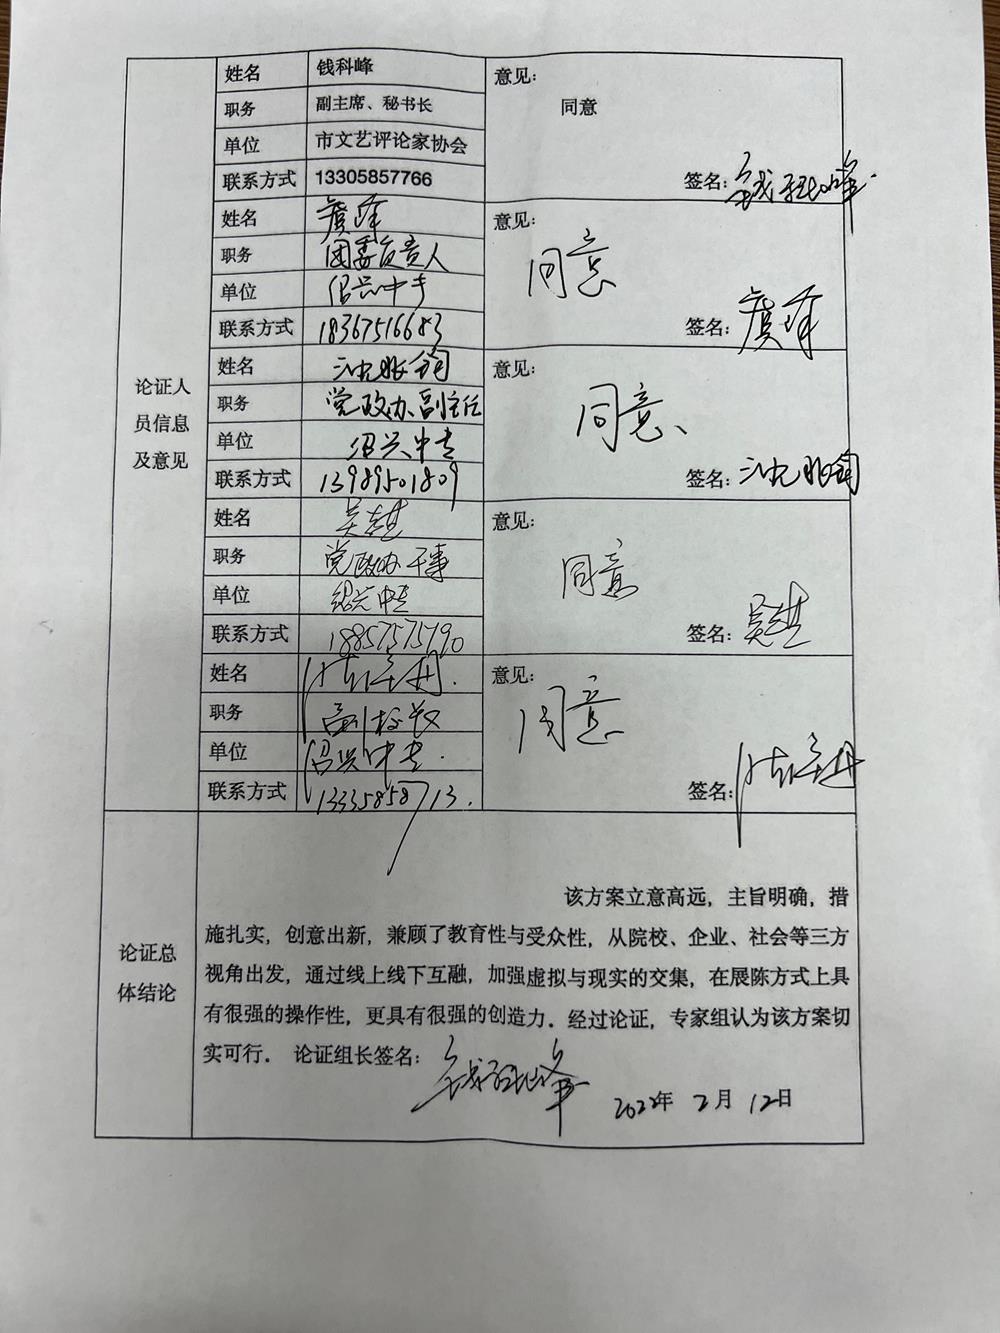 姓名 钱科峰 意见：
职务 副主席、秘书长 同意
单位 市文艺评论家协会
联系方式 13305857766 签名：钱科峰
姓名 意见：
职务 团委负责人 同意
单位 绍兴中专
联系方式 18367516683 签名：
论证人
员信息
及意见
姓名 意见：
职务 党政办副主任 同意、
单位 绍兴中专
联系方式 13989501809 签名：
姓名 意见：
职务 党政办干事 同意
单位 绍兴中专
联系方式 18857575190 签名：
姓名 意见：
职务 副校长 同意
单位 绍兴中专.
联系方式 13335858713. 签名：
论证总
体结论
该方案立意高远，主旨明确，措
施扎实，创意出新，兼顾了教育性与受众性，从院校、企业、社会等三方
视角出发，通过线上线下互融，加强虚拟与现实的交集，在展陈方式上具
有很强的操作性，更具有很强的创造力。经过论证，专家组认为该方案切
实可行。 论证组长签名：钱科峰
2022年 2月 12日